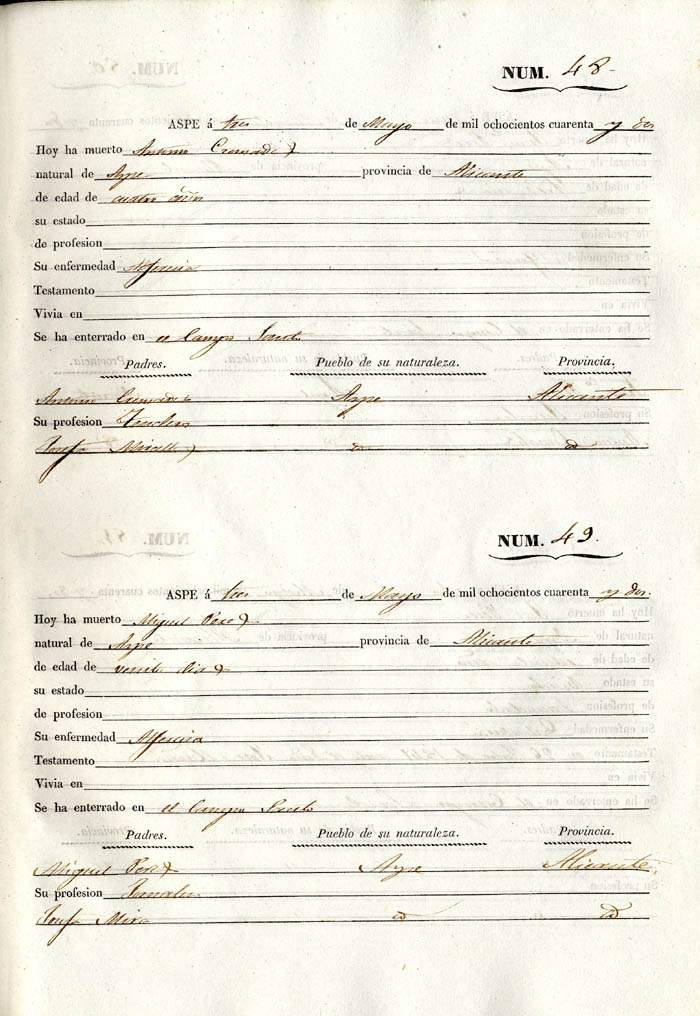 NUM. 48
ASPE á tres de Mayo de mil ochocientos cuarenta y dos
Hoy ha muerto Antonio Cremades
natural de Aspe provincia de Alicante
de edad de cuatro años
su estado
de profesion
Su enfermedad Alferecia
Testamento
Vivia en
Se ha enterrado en el Campo Santo
Padres. Pueblo de su naturaleza. Provincia.
Antonio Cremades Aspe Alicante
Su profesion
Josefa id id
NUM. 49.
ASPE á tres de Mayo de mil ochocientos cuarenta y dos.
Hoy ha muerto Miguel Perez
natural de Aspe provincia de Alicante
de edad de veinte dias
su estado
de profesion
Su enfermedad Alferecia
Testamento
Vivia en
Se ha enterrado en el Campo Santo
Padres. Pueblo de su naturaleza. Provincia.
Miguel Perez Aspe Alicante
Su profesion
Josefa Mira id id